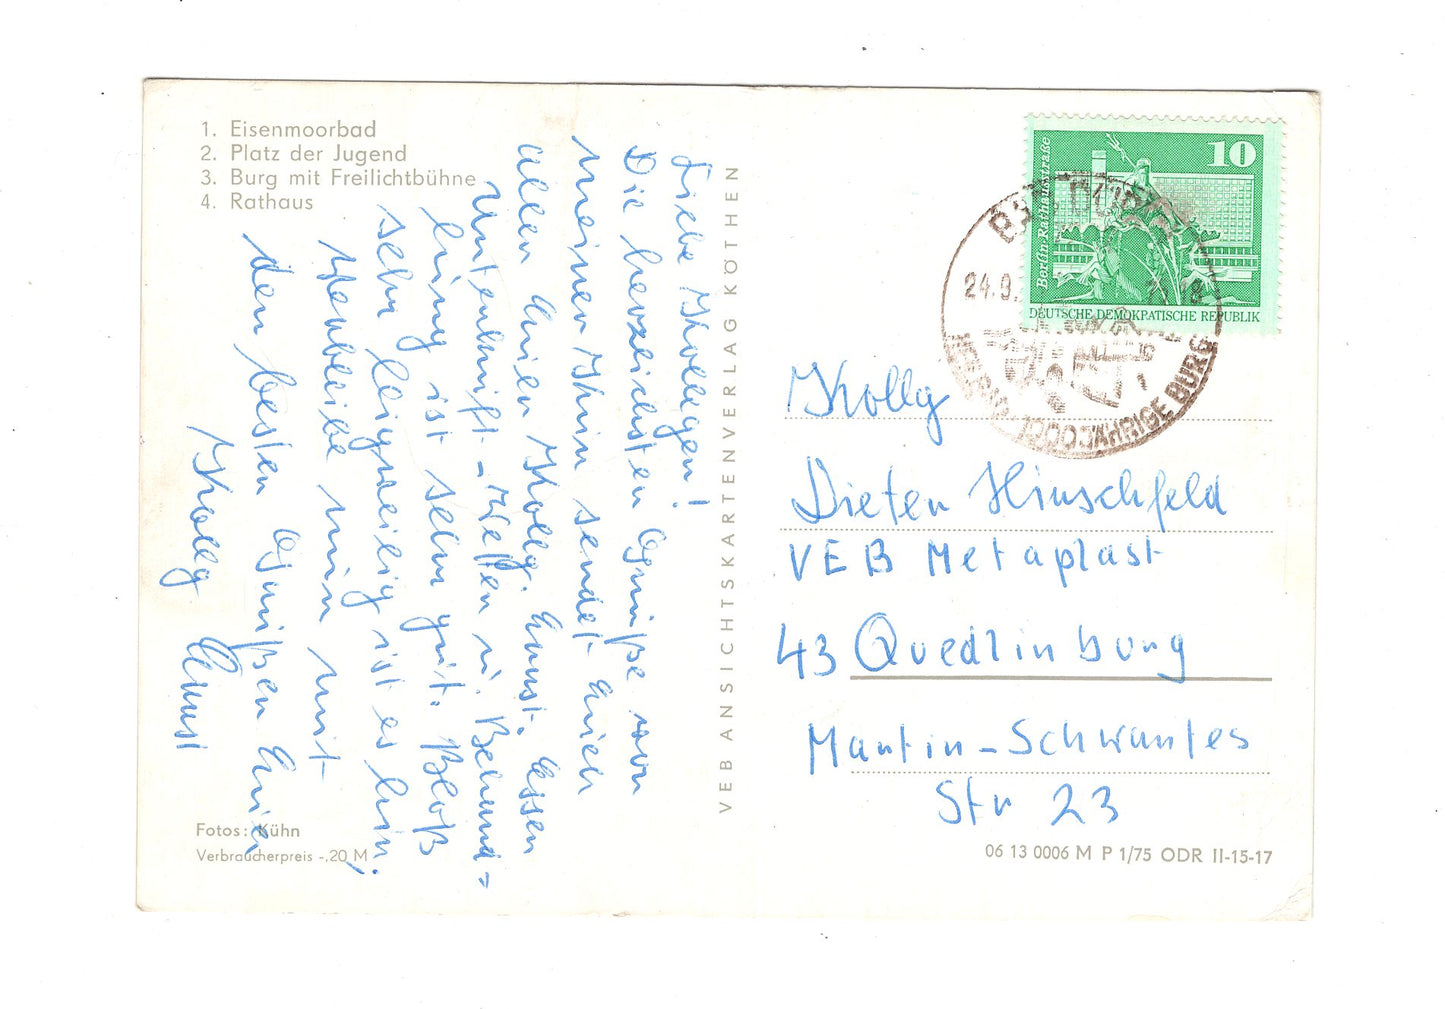 1. Eisenmoorbad
2. Platz der Jugend
3. Burg mit Freilichtbühne
4. Rathaus
Liebe Kollegen!
Die herzlichsten Grüße von
meiner Kur sendet Euch
allen Euer Kollg. Ernst. Essen
Unterkunft - Wetter u. Behand=
lung ist sehr gut. Bloß
sehr langweilig ist es hier,
Verbleibe nun mit
den besten Grüßen Euer
Kollg Ernst
Fotos: Kühn
Verbraucherpreis -,20 M
VEB ANSICHTSKARTENVERLAG KÖTHEN
10
Berlin, Rathausstraße
DEUTSCHE DEMOKRATISCHE REPUBLIK
BAD DÜBEN
24.9.
18
1000 JÄHRIGE BURG
Kollg
Dieter Hirschfeld
VEB Metaplast
43 Quedlinburg
Martin-Schwantes
Str 23
06 13 0006 M P 1/75 ODR II-15-17